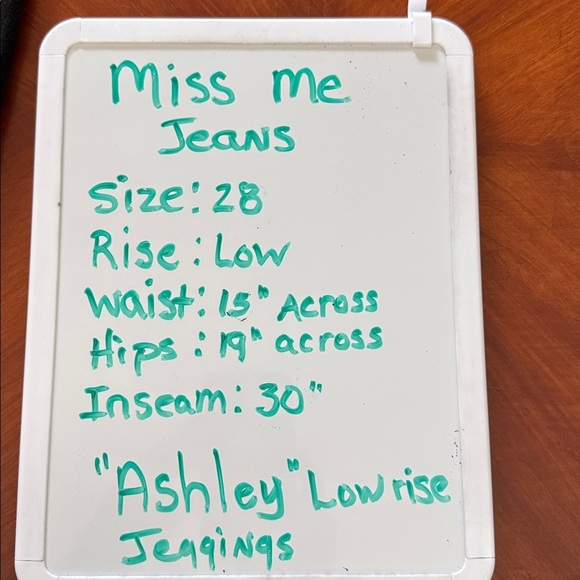 Miss Me
Jeans
Size: 28
Rise: Low
Waist: 15" Across
Hips: 19" across
Inseam: 30"
"Ashley" Low rise
Jeggings